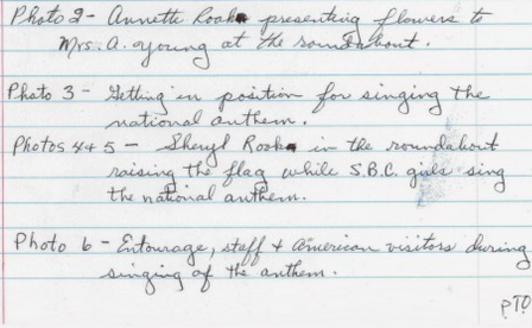 Photo 2 - Annette Rooks presenting flowers to
Mrs. A. Young at the roundabout.
Photo 3 - Getting in position for singing the
national anthem.
Photos 4 + 5 - Sheryl Rooks in the roundabout
raising the flag while S.B.C. girls sing
the national anthem.
Photo 6 - Entourage, staff + American visitors during
singing of the anthem.
PTO